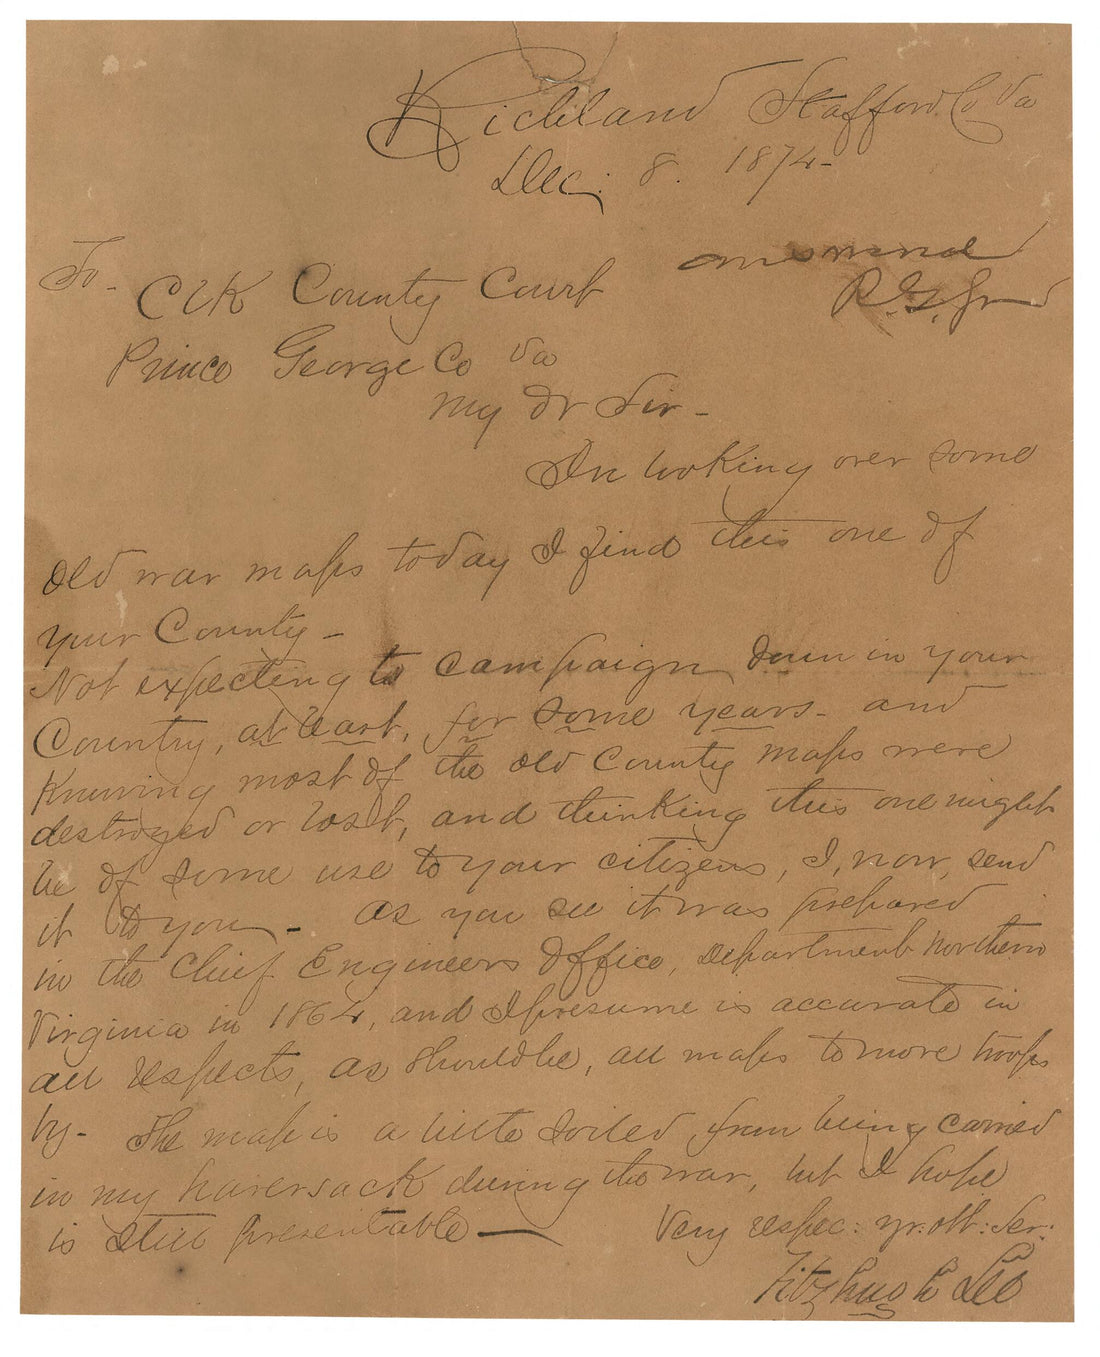 Richland Stafford Co Va
Dec: 8. 1874-
To- answered
Clk County Court R. G. Jr
Prince George Co Va
My Dr Sir-
In looking over some
old war maps today I find this one of
your County-
Not expecting to campaign down in your
Country, at least, for some years- and
Knowing most of the old County maps were
destroyed or lost, and thinking this one might
be of some use to your citizens, I, now, send
it to you- As you see it was prepared
in the Chief Engineers Office, Department Northern
Virginia in 1864, and I presume is accurate in
all respects, as should be, all maps to move troops
by- The map is a little soiled from being carried
in my haversack during the war, but I hope
is still presentable—
Very respec: yr: obt: Ser:
Fitzhugh Lee